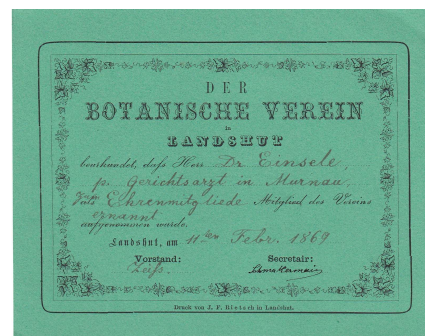 DER
BOTANISCHE VEREIN
in
LANDSHUT
beurkundet, dass Herr Dr Einsele,
p. Gerichtsarzt in Murnau,
zum Ehrenmitgliede Mitglied des Vereins
ernannt
aufgenommen wurde.
Landshut, am 11ten Febr. 1869
Vorstand: Secretair:
Druck von J. F. Rietsch in Landshut.